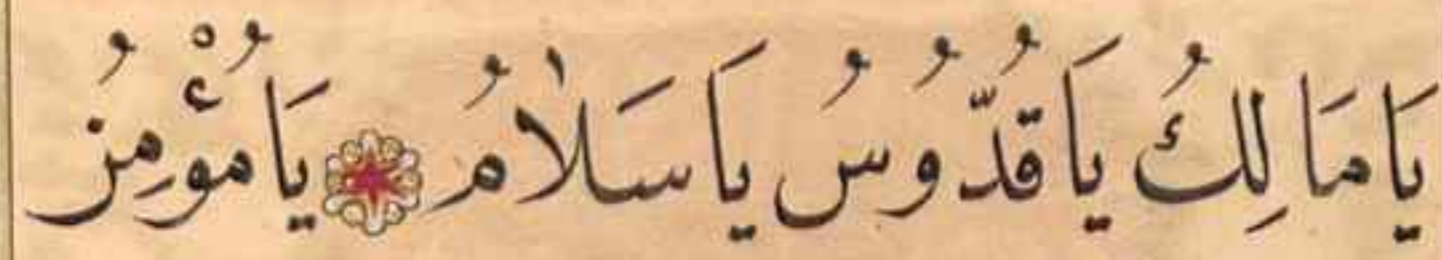 يَا مَالِكُ يَا قُدُّوسُ يَا سَلَامُ يَا مُؤْمِنُ